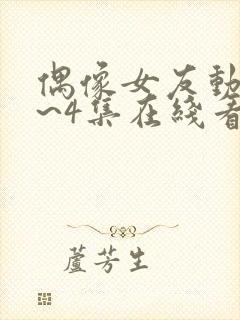 偶像女友動
~4集在綫看
蘆芳生